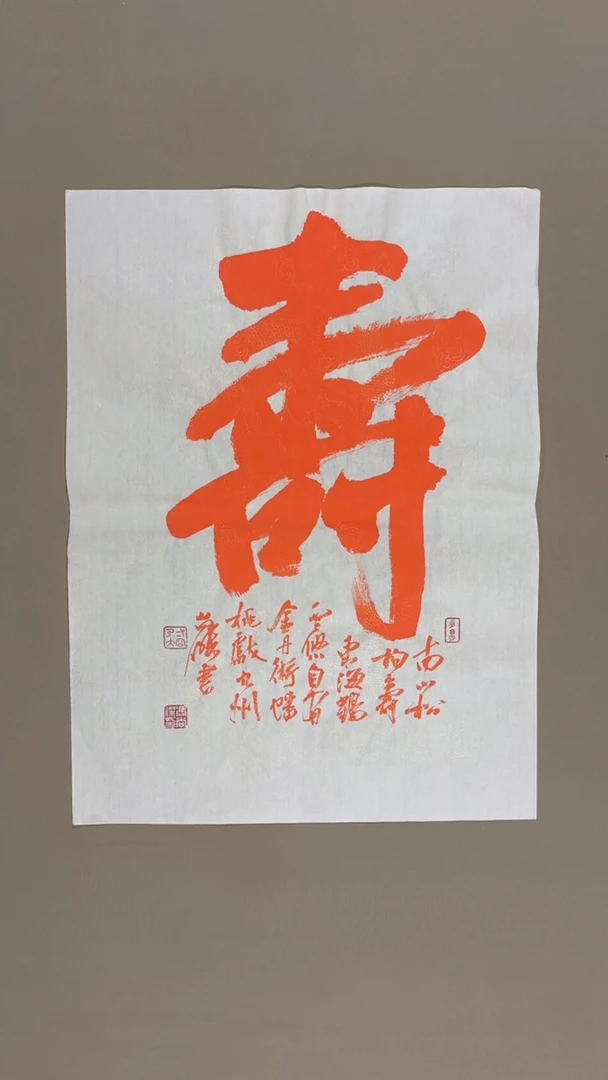 壽
南山松
柏壽
東海鶴
雲悠自有
金丹術蟠
桃獻九州
書